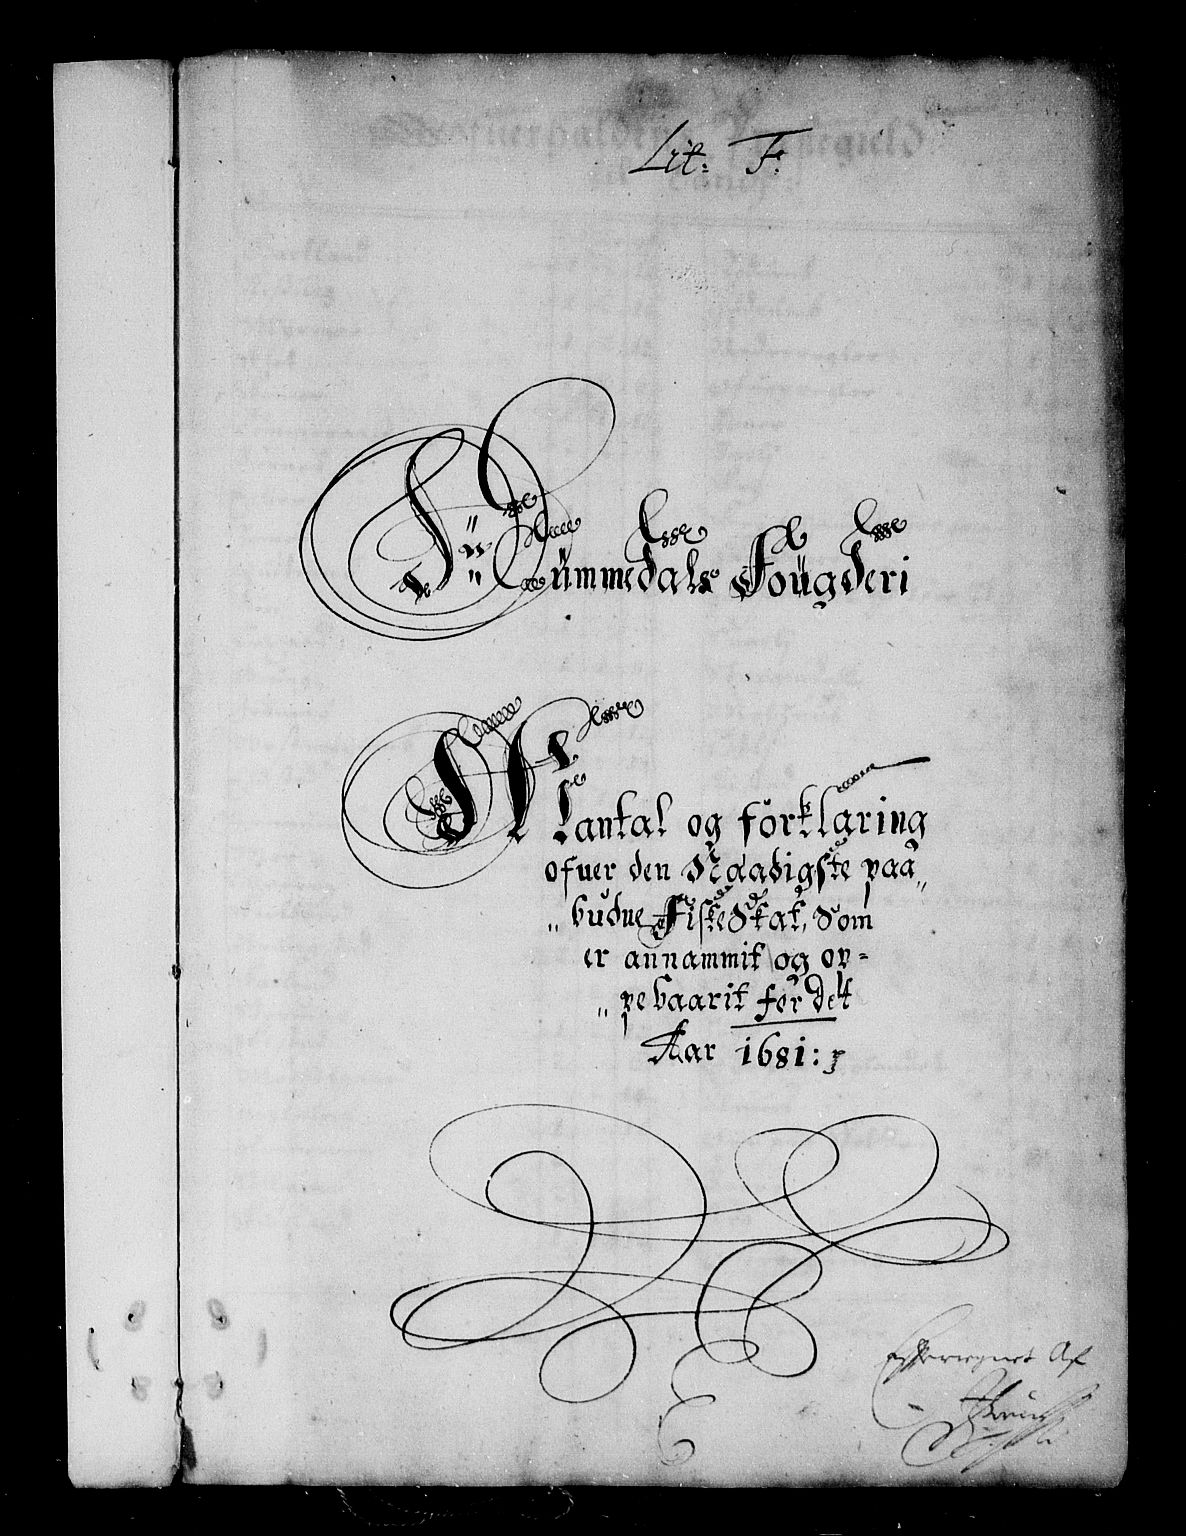 Lit: F:
Nummedals Fougderi
Mantal og forklaring
ofuer den Naadigste paa„
„budne Fiske Skat, Som
er annammit og op=
„pebaarit for det
Aar 1681:
Efterregnet Af